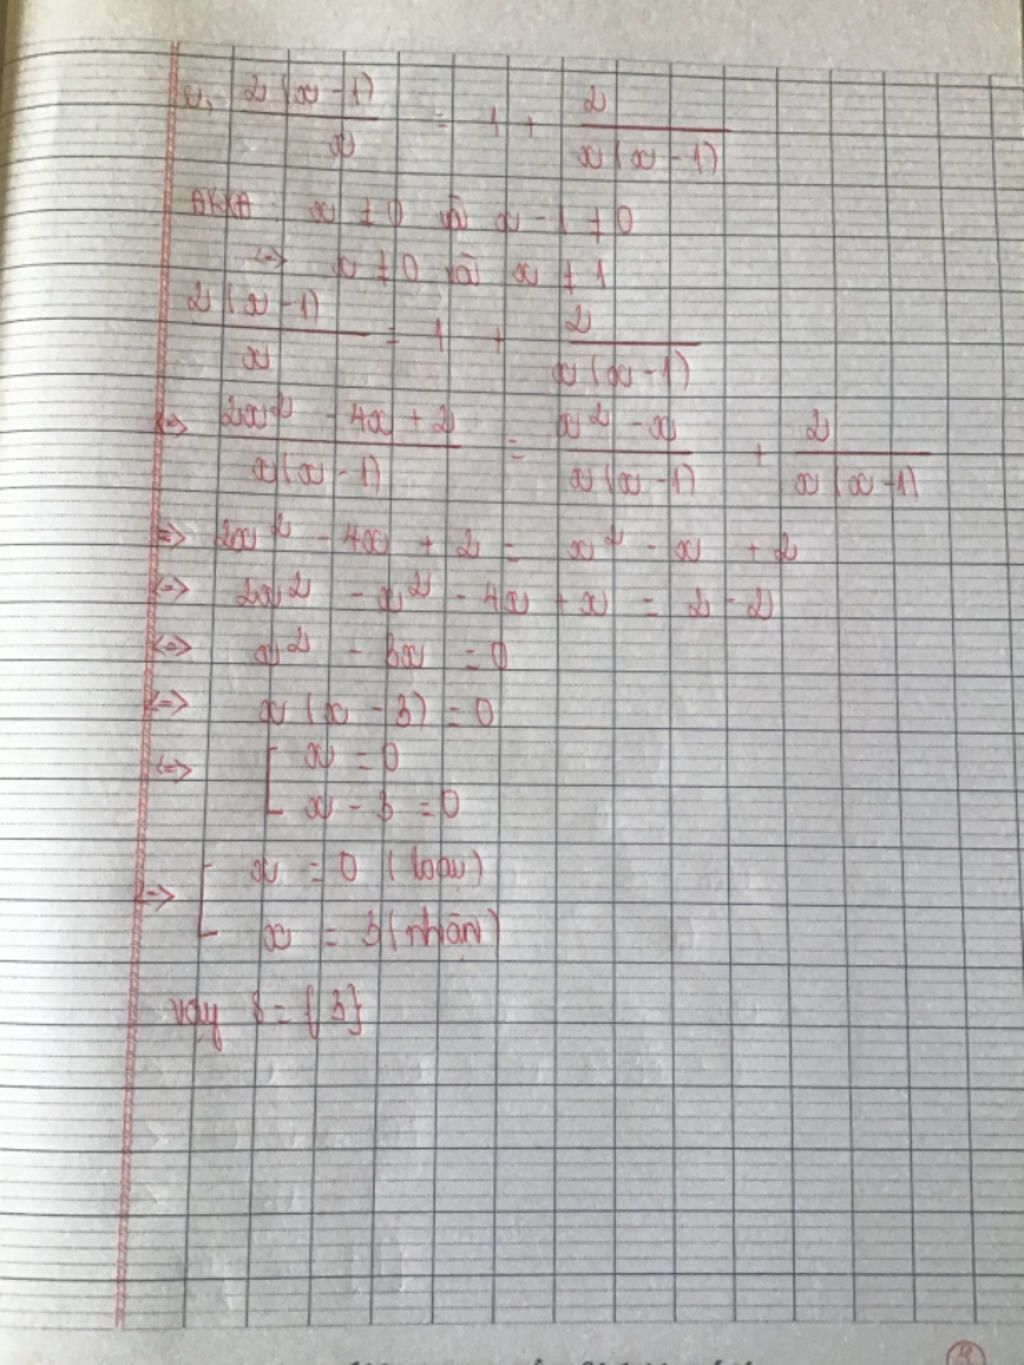 2(x - 1)/x = 1 + 2/x(x - 1)
ĐKXĐ x ≠ 0 và x - 1 ≠ 0
<=> x ≠ 0 và x ≠ 1
2(x - 1)/x = 1 + 2/x(x - 1)
<=> 2x² - 4x + 2/x(x - 1) = x² - x/x(x - 1) + 2/x(x - 1)
=> 2x² - 4x + 2 = x² - x + 2
<=> 2x² - x² - 4x + x = 2 - 2
<=> x² - 3x = 0
<=> x(x - 3) = 0
<=> [ x = 0
x - 3 = 0
<=> [ x = 0 (loại)
x = 3 (nhận)
Vậy S = {3}